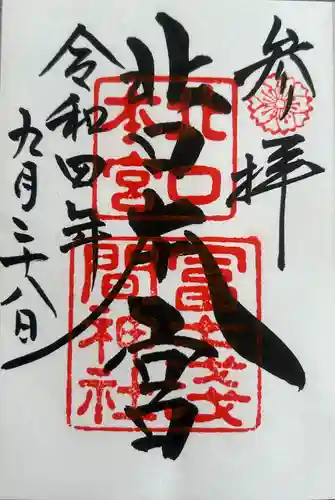 参拝
北口本宮
令和四年
九月二十八日
北口
本宮
冨士浅
間神社